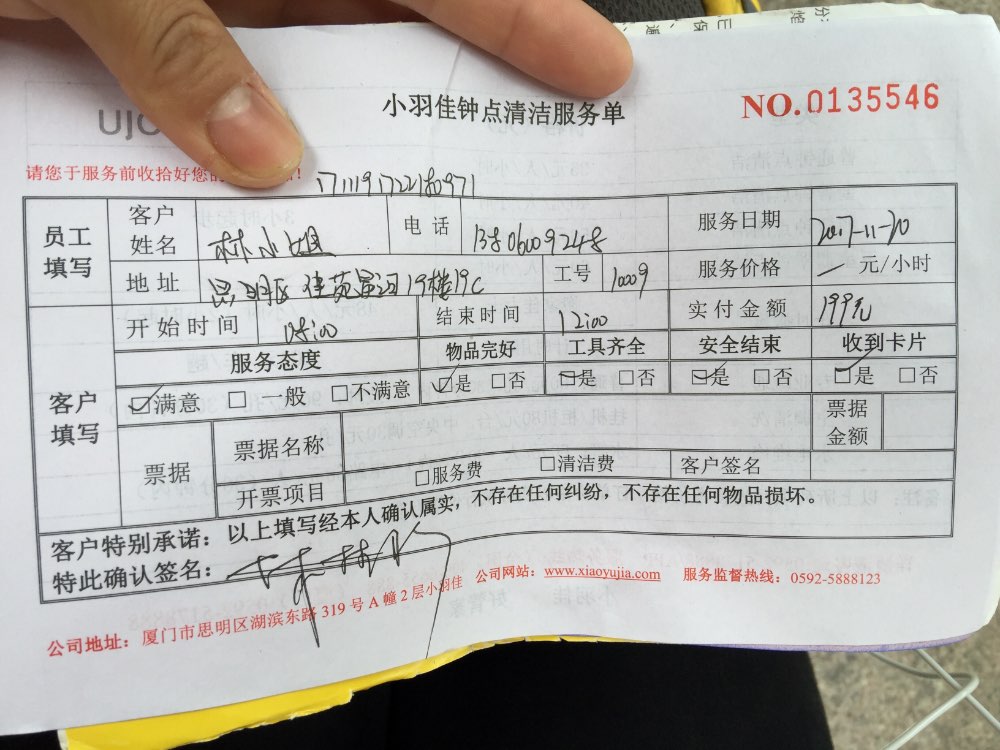 小羽佳钟点清洁服务单
NO.0135546
请您于服务前收拾好您的
员工填写 客户姓名 林小姐 电话 13806009248 服务日期 2017-11-20
地址 思明区 佳苑 19楼19C 工号 10009 服务价格 一 元/小时
开始时间 08:00 结束时间 12:00 实付金额 199元
客户填写 服务态度 物品完好 工具齐全 安全结束 收到卡片
☑满意 □一般 □不满意 ☑是 □否 ☑是 □否 ☑是 □否 ☑是 □否
票据 票据名称 票据金额
开票项目 □服务费 □清洁费 客户签名
客户特别承诺：以上填写经本人确认属实，不存在任何纠纷，不存在任何物品损坏。
特此确认签名：
公司地址：厦门市思明区湖滨东路319号A幢2层小羽佳 公司网站：www.xiaoyujia.com 服务监督热线：0592-5888123